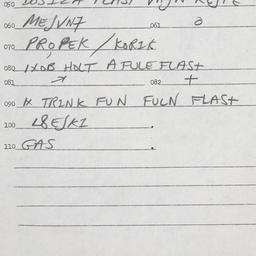 060 MEJVN7 061 a
070 PROPEK / KORIK
080 1XOB HOLT A FULE FLAS+
081 → 082 +
090 1X TRINK FUN FULN FLAS+
100 L8EJKI .
110 GAS .